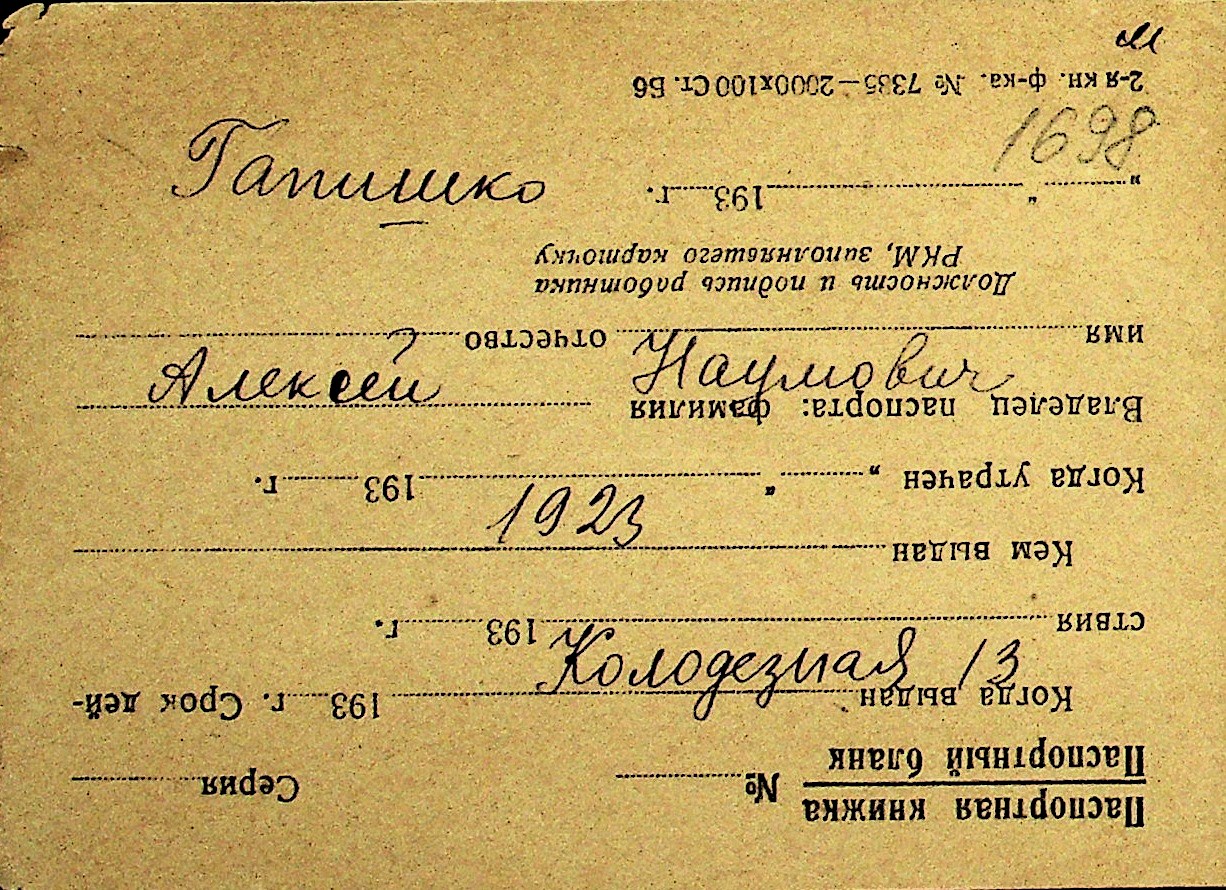 м
1698
Гапишко
Алексей Наумович
1923
Колодезная 13
Паспортная книжка
Паспортный бланк
№ Серия
Когда выдан 193 г. Срок дей-
ствия 193 г.
Кем выдан
Когда утрачен „ “ 193 г.
Владелец паспорта: фамилия
имя отчество
Должность и подпись работника
РКМ, заполнявшего карточку
„ “ 193 г.
2-я кн. ф-ка. № 7335—2000х100 Ст. Б6